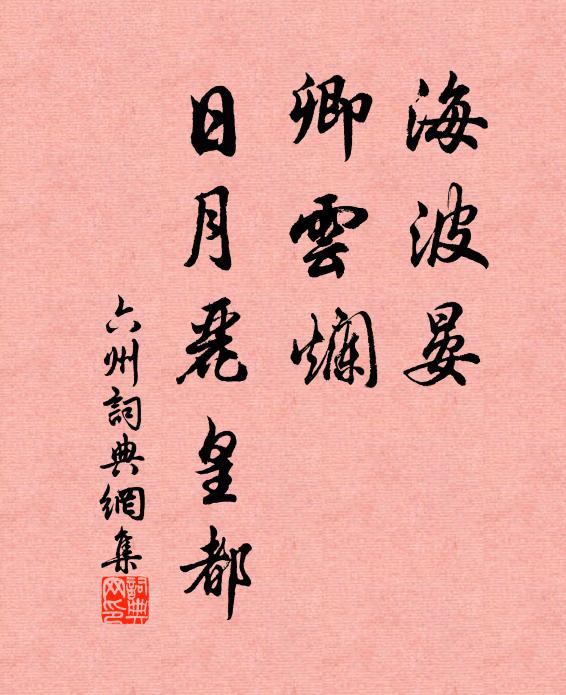 海波晏
卿雲爛
日月麗皇都
六州詞典網集
詞典网印